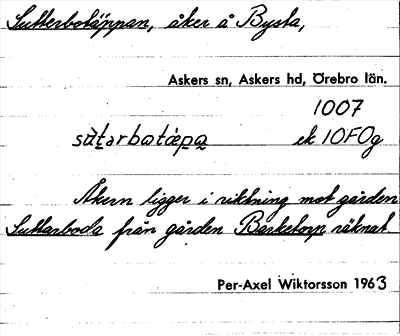 Sutterbotäppan, åker å Bysta,
Askers sn, Askers hd, Örebro län.
1007
sùt̠ərbωtȧp̠a̠ ek 10F0g
Åkern ligger i riktning mot gården
Suttarboda från gården Barketorp räknat
Per-Axel Wiktorsson 1963